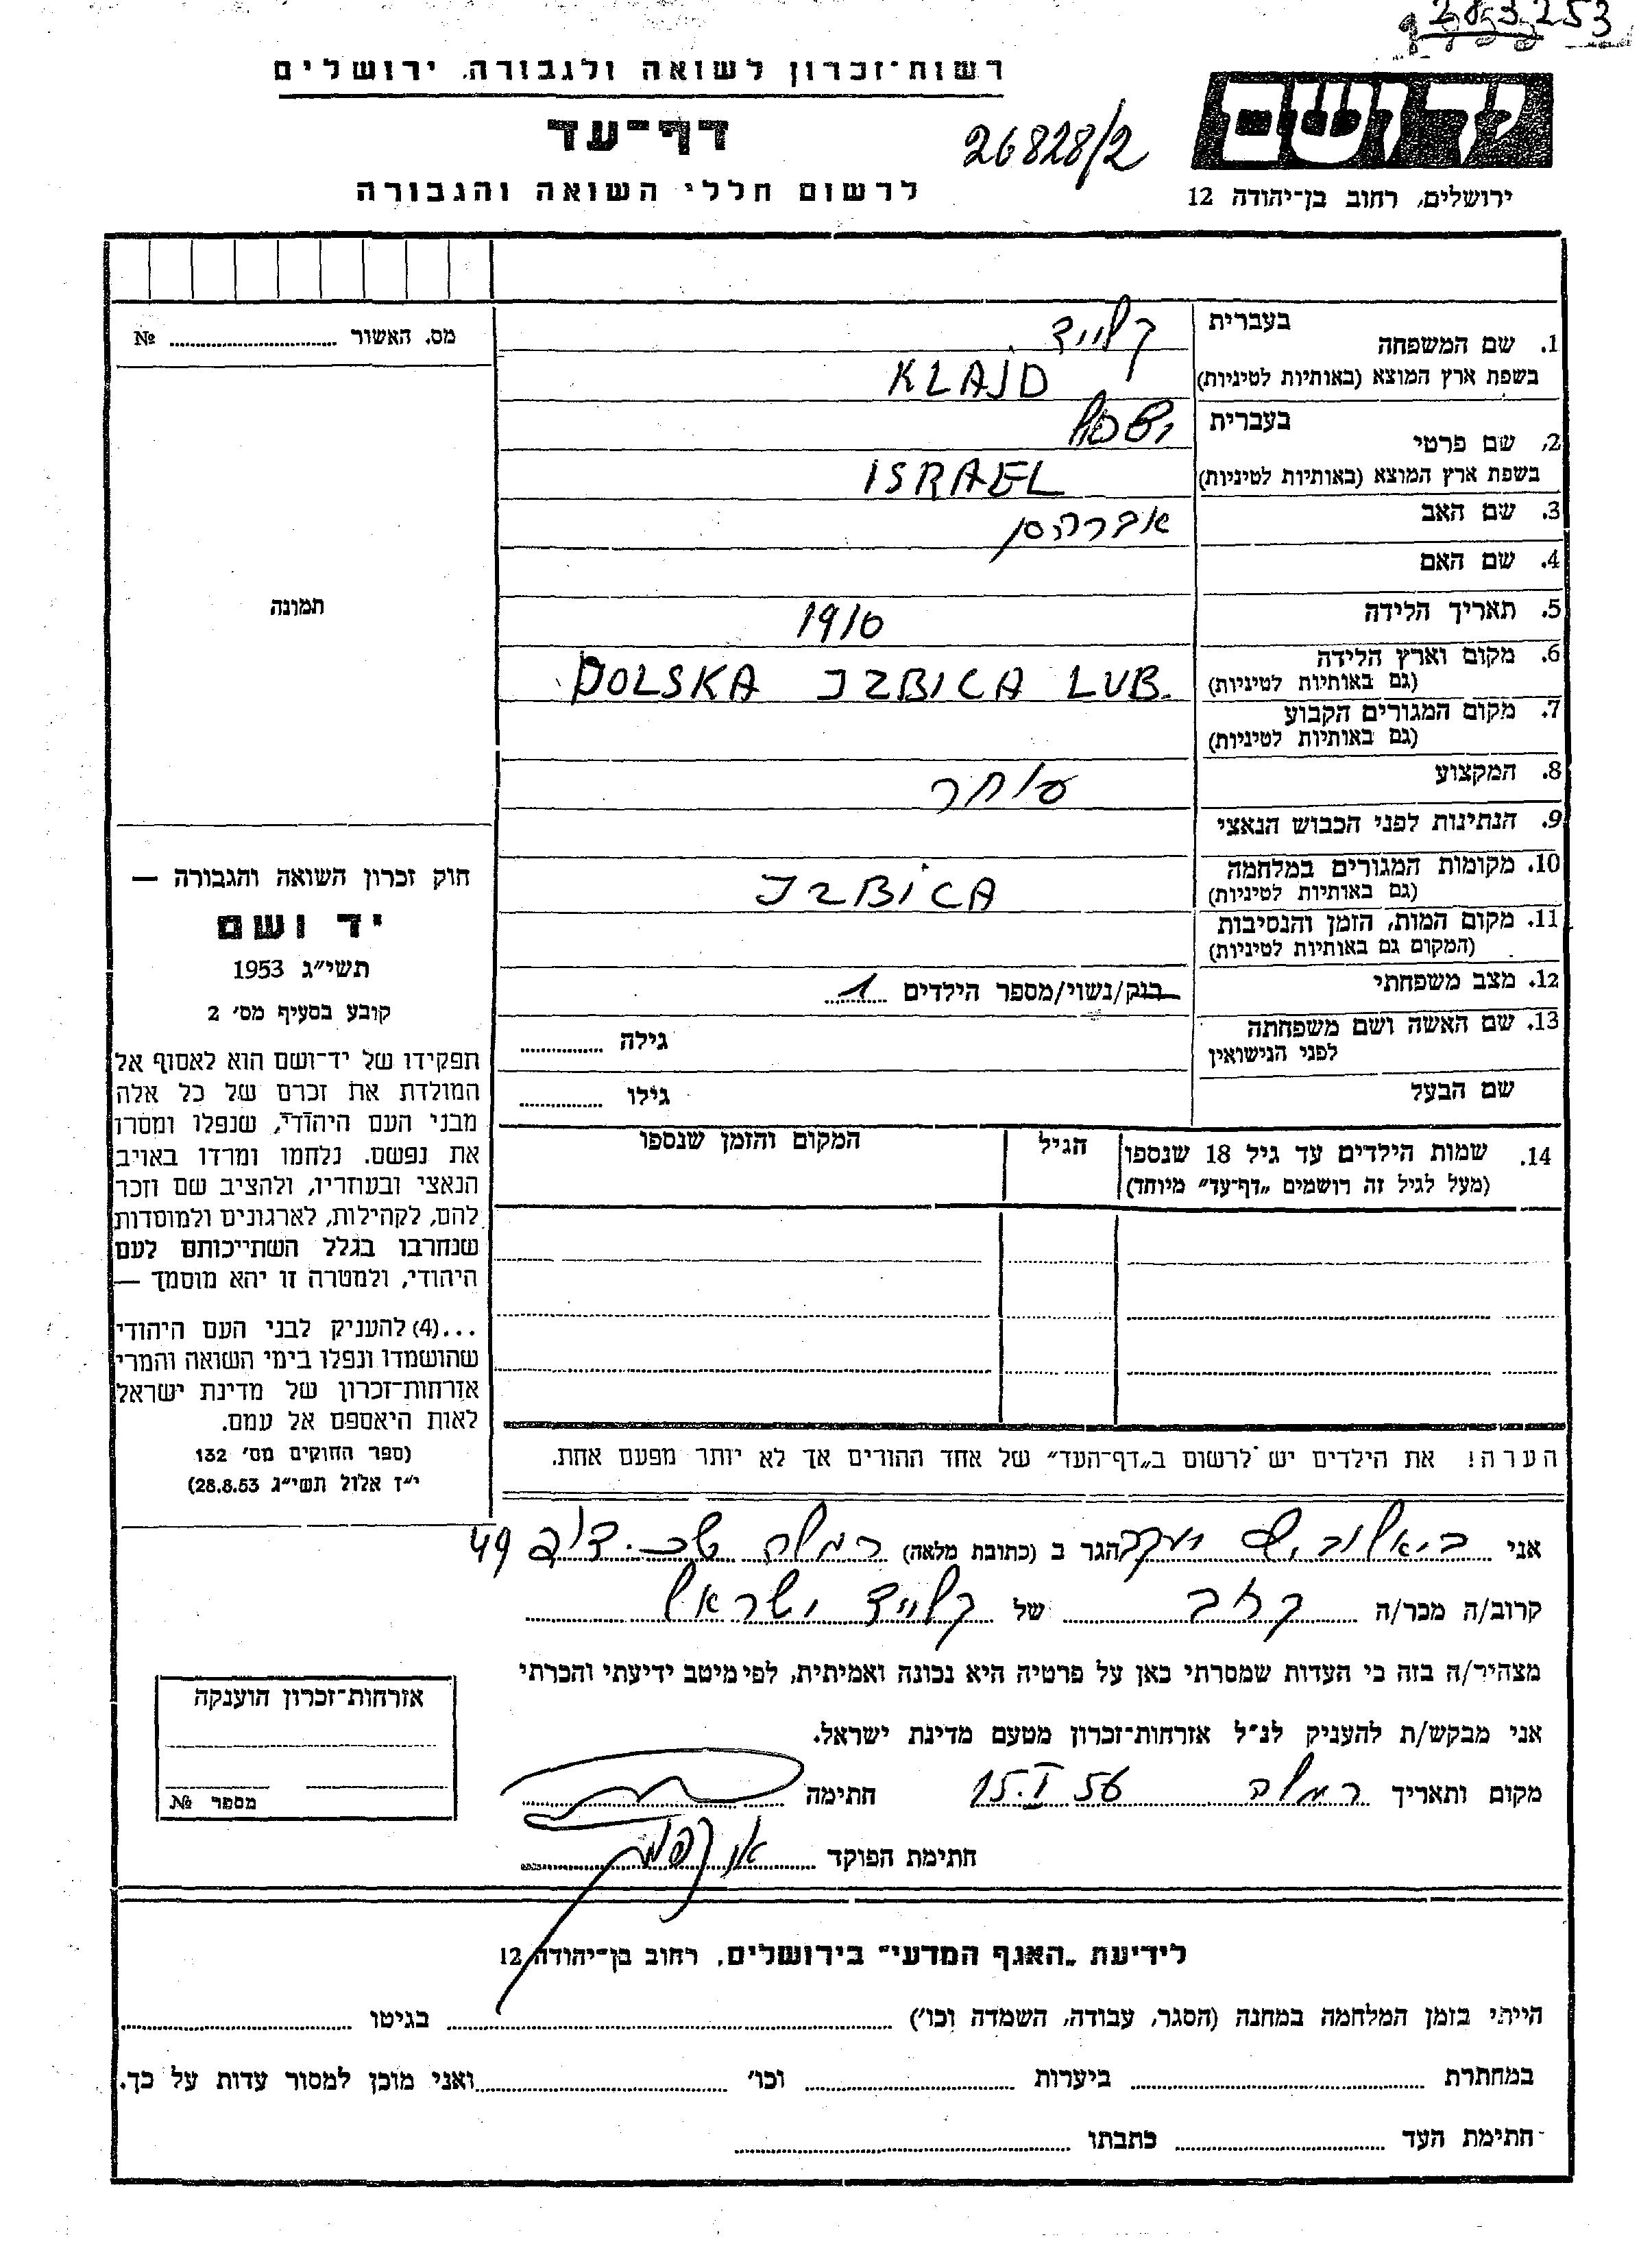 283253
רשות־זכרון לשואה ולגבורה, ירושלים
ידושם
דף־עד
26828/2
לרשום חללי השואה והגבורה
ירושלים, רחוב בן־יהודה 12
מס. האשור № 
1. שם המשפחה בעברית קלייד
בשפת ארץ המוצא (באותיות לטיניות) KLAJD
2. שם פרטי בעברית
בשפת ארץ המוצא (באותיות לטיניות) ISRAEL
3. שם האב אברהם
4. שם האם
5. תאריך הלידה 1910
6. מקום וארץ הלידה
(גם באותיות לטיניות) POLSKA IZBICA LUB.
7. מקום המגורים הקבוע
(גם באותיות לטיניות)
8. המקצוע סוחר
9. הנתינות לפני הכבוש הנאצי
10. מקומות המגורים במלחמה
(גם באותיות לטיניות) IZBICA
11. מקום המות, הזמן והנסיבות
(המקום גם באותיות לטיניות)
12. מצב משפחתי רווק/נשוי/מספר הילדים 1
13. שם האשה ושם משפחתה
לפני הנישואין גילה
שם הבעל גילו
14. שמות הילדים עד גיל 18 שנספו הגיל המקום והזמן שנספו
(מעל לגיל זה רושמים „דף־עד" מיוחד)
תמונה
חוק זכרון השואה והגבורה —
יד ושם
תשי״ג 1953
קובע בסעיף מס׳ 2
תפקידו של יד־ושם הוא לאסוף אל
המולדת את זכרם של כל אלה
מבני העם היהודי, שנפלו ומסרו
את נפשם. נלחמו ומרדו באויב
הנאצי ובעוזריו, ולהציב שם וזכר
להם, לקהילות, לארגונים ולמוסדות
שנחרבו בגלל השתייכותם לעם
היהודי, ולמטרה זו יהא מוסמך —
...(4) להעניק לבני העם היהודי
שהושמדו ונפלו בימי השואה והמרי
אזרחות־זכרון של מדינת ישראל
לאות היאספם אל עמם.
(ספר החוקים מס׳ 132
י״ז אלול תשי״ג 28.8.53)
הערה! את הילדים יש לרשום ב„דף־העד" של אחד ההורים אך לא יותר מפעם אחת.
אני יעקב הגר ב (כתובת מלאה) רמלה 49
קרוב/ה מכר/ה קרוב של קלייד ישראל
מצהיר/ה בזה כי העדות שמסרתי כאן על פרטיה היא נכונה ואמיתית, לפי מיטב ידיעתי והכרתי
אני מבקש/ת להעניק לנ״ל אזרחות־זכרון מטעם מדינת ישראל.
מקום ותאריך רמלה 15.I 56 חתימה
חתימת הפוקד
אזרחות־זכרון הוענקה
מספר №
לידיעת „האגף המדעי" בירושלים, רחוב בן־יהודה 12
הייתי בזמן המלחמה במחנה (הסגר, עבודה, השמדה וכו׳) בגיטו
במחתרת ביערות וכו׳ ואני מוכן למסור עדות על כך.
חתימת העד כתבתו